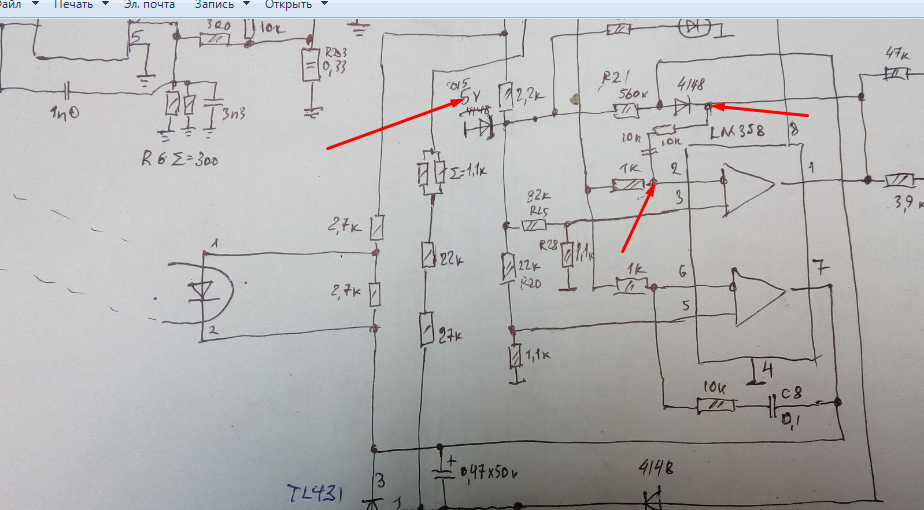 Файл Печать Эл. почта Запись Открыть
300
10к
47к
5
0,33
5V
2,2к
R21
560к
4148
4148
1n
3n3
10n
10к
LM358
8
R6 Σ=300
Σ=1,1к
1к
2
1
82к
R25
3
3,9к
2,7к
R28
1,1к
1
22к
22к
R20
1к
6
7
2,7к
5
2
27к
1,1к
4
10к
C8
0,1
+
0,47x50v
4148
3
TL431
1